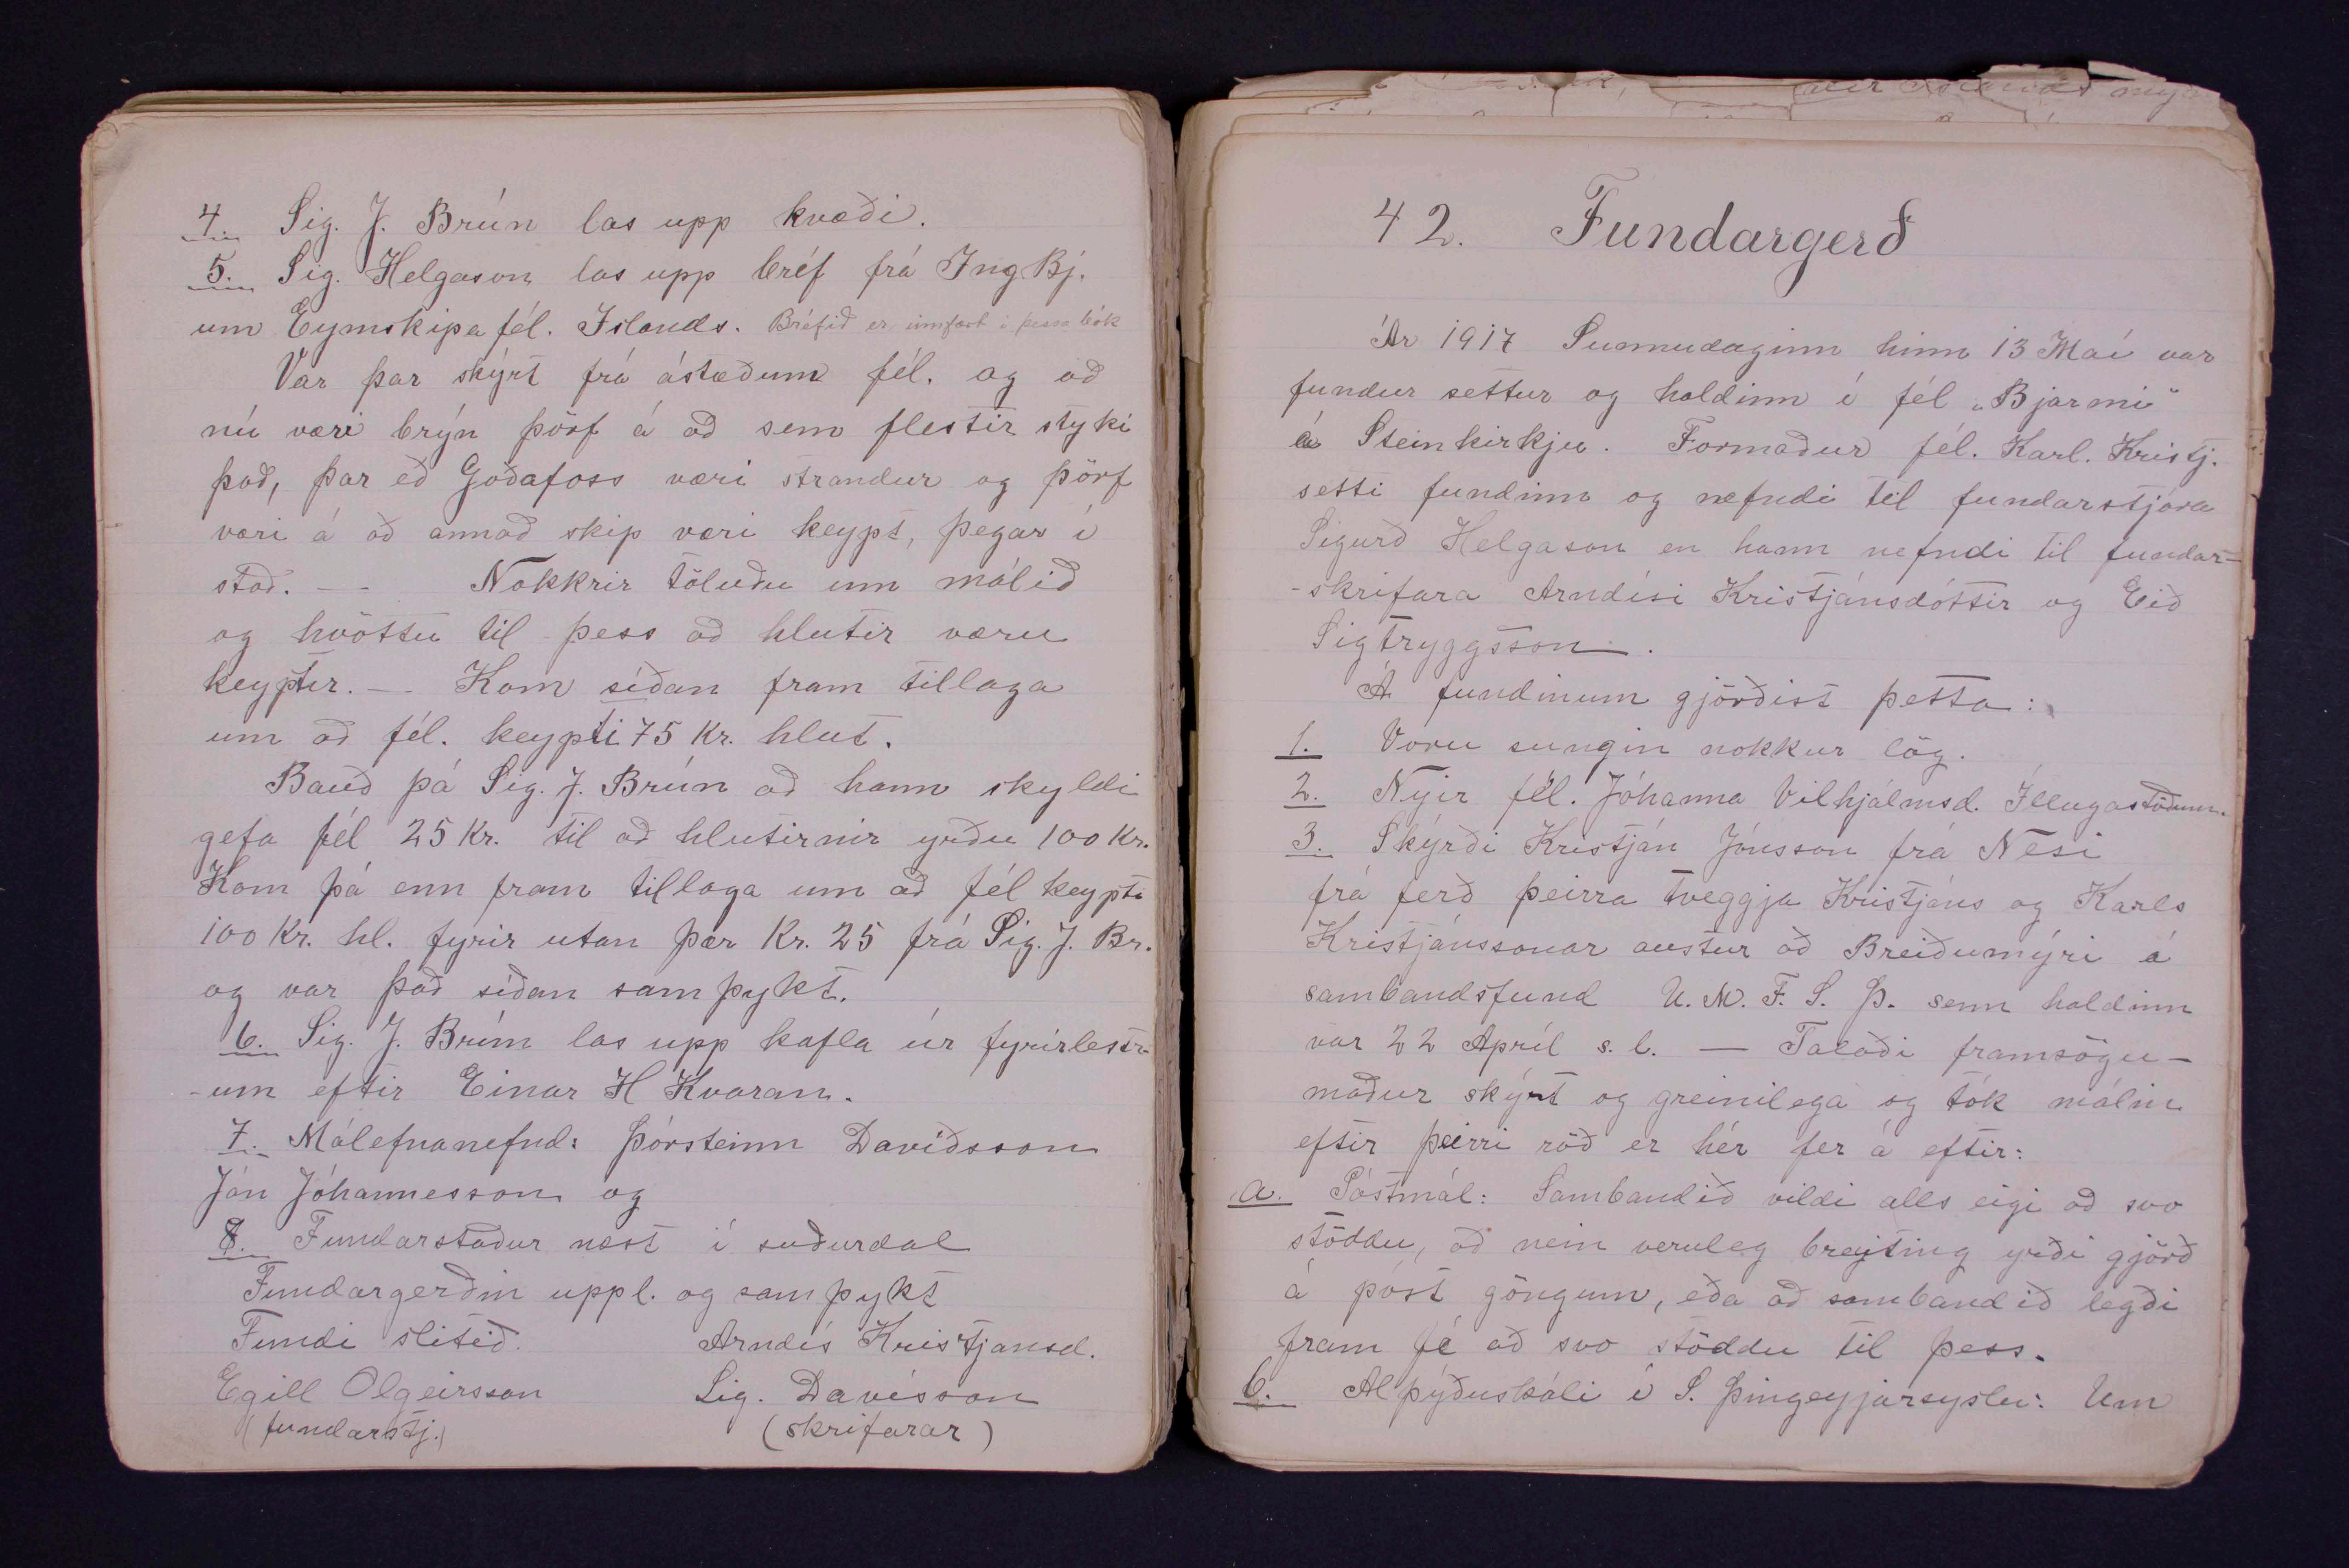 4. Sig. J. Brún las upp kvæði.
5. Sig. Helgason las upp bréf frá Ing Bj.
um Eymskipafél. Islands. Bréfið er innfært í þessa bók
Var þar skýrt frá ástæðum fél. og að
nú væri brýn þörf á að sem flestir styki
það, þar eð Goðafoss væri strandur og þörf
væri á að annað skip væri keypt, þegar í
stað. - - Nokkrir töluðu um málið
og hvöttu til þess að hlutir væru
keyptir. - Kom síðan fram tillaga
um að fél. keypti 75 Kr. hlut.
Bauð þá Sig. J. Brún að hann skyldi
gefa fél 25 Kr. til að hlutirnir yrðu 100 Kr.
Kom þá enn fram tillaga um að fél keypti
100 Kr. hl. fyrir utan þær Kr. 25 frá Sig. J. Br.
og var það síðan samþykt.
6. Sig. J. Brún las upp kafla úr fyrirlestr-
-um eftir Einar H Kvaran.
7. Málefnanefnd: Þórsteinn Davíðsson
Jón Jóhannesson og
8. Fundarstaður næst í suðurdal
Fundargerðin uppl. og samþykt
Fundi slitið. Arndís Kristjansd.
Egill Olgeirsson Sig. Davísson
(fundarstj.) (skrifarar)
42. Fundargerð
Ár 1917 Sunnudaginn hinn 13 Maí var
fundur settur og haldinn í fél „Bjarmi"
á Steinkirkju. Formaður fél. Karl. Kristj.
setti fundinn og nefndi til fundarstjóra
Sigurð Helgason en hann nefndi til fundar-
-skrifara Arndísi Kristjánsdóttir og Eið
Sigtryggsson.
Á fundinum gjörðist þetta:
1. Voru sungin nokkur lög.
2. Nýir fél. Jóhanna Vilhjálmsd. Illugastöðum.
3. Skýrði Kristján Jónsson frá Nesi
frá ferð þeirra tveggja Kristjáns og Karls
Kristjánssonar austur að Breiðumýri á
sambandsfund U. M. F. S. Þ. sem haldinn
var 22 Apríl s. l. — Talaði framsögu-
maður skýrt og greinilega og tók málin
eftir þeirri röð er hér fer á eftir:
a. Póstmál: Sambandið vildi alls eigi að svo
stöddu, að nein veruleg breyting yrði gjörð
á póst göngum, eða að sambandið legði
fram fé að svo stöddu til þess.
b. Alþýðuskóli í S. Þingeyjarsyslu: Um